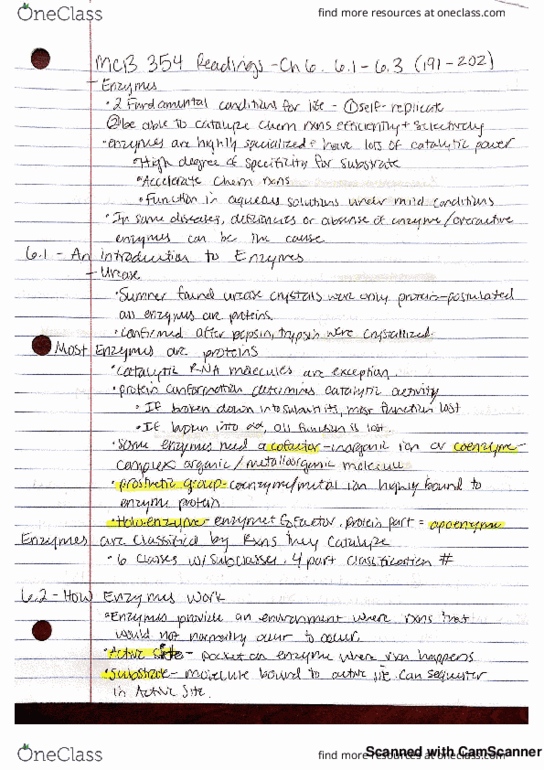 OneClass
find more resources at oneclass.com
MCB 354 Readings - Ch 6. 6.1 - 6.3 (191-202)
- Enzymes
• 2 Fundamental conditions for life - ① self-replicate
② be able to catalyze chem rxns efficiently + selectively
• enzymes are highly specialized + have lots of catalytic power
• High degree of specificity for substrate
• Accelerate chem rxns
• Function in aqueous solutions under mild conditions
• In some diseases, deficiencies or absense of enzyme/overactive
enzymes can be the cause
6.1 - An introduction to Enzymes
- Urease
• Sumner found urease crystals were only protein - postulated
all enzymes are proteins.
• Confirmed after pepsin, trypsin were crystallized
Most Enzymes are proteins
• Catalytic RNA molecules are exception.
• protein conformation determines catalytic activity
• If broken down into subunits, most function lost
• If broken into aa, all function is lost.
• Some enzymes need a cofactor - inorganic ion or coenzyme -
complex organic / metalloorganic molecule
• prosthetic group - coenzyme/metal ion highly bound to
enzyme protein
• Holoenzyme - enzyme + cofactor, protein part = apoenzyme
Enzymes are classified by Rxns they catalyze
• 6 classes w/ subclasses, 4 part classification #
6.2 - How Enzymes Work
• Enzymes provide an environment where rxns that
would not normally occur to occur.
• Active site - pocket on enzyme where rxn happens
• Substrate - molecule bound to active site can sequester
in Active site.
OneClass
find more resources at oneclass.com
Scanned with CamScanner